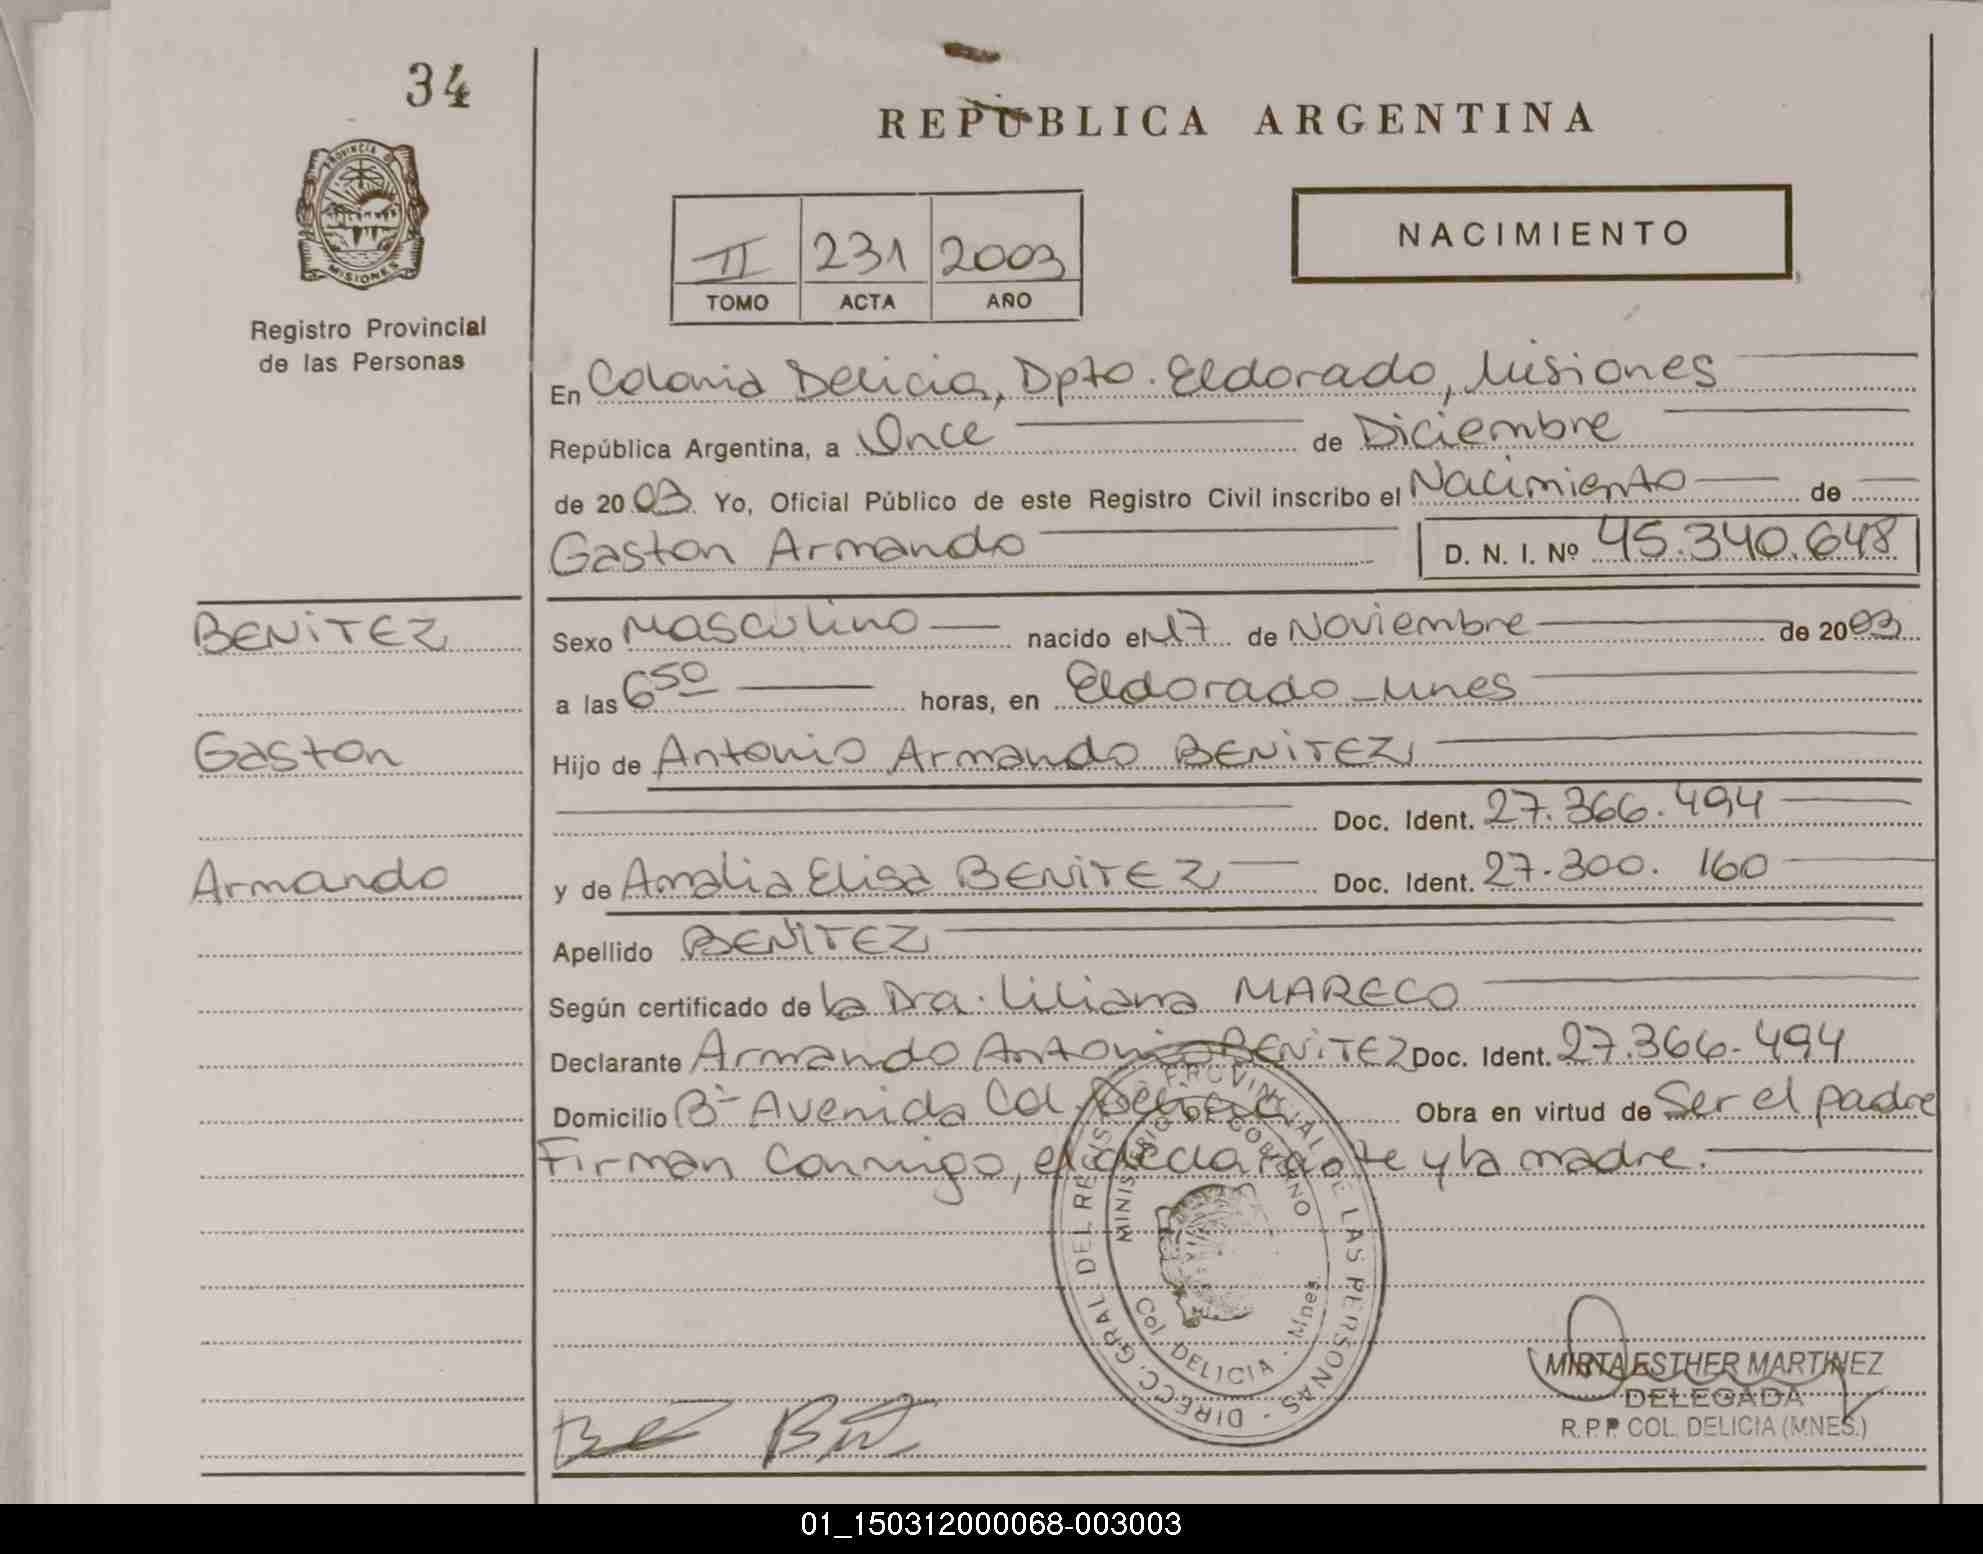 34
REPUBLICA ARGENTINA
PROVINCIA DE
MISIONES
Registro Provincial
de las Personas
II 231 2003
TOMO ACTA AÑO
NACIMIENTO
En Colonia Delicia, Dpto. Eldorado, Misiones
República Argentina, a Once de Diciembre
de 2003 Yo, Oficial Público de este Registro Civil inscribo el Nacimiento de
Gaston Armando D. N. I. Nº 45.340.648
BENITEZ
Gaston
Armando
Sexo Masculino nacido el 17 de Noviembre de 2003
a las 6 50 horas, en Eldorado - Mnes
Hijo de Antonio Armando BENITEZ
Doc. Ident. 27.366.494
y de Amalia Elisa BENITEZ Doc. Ident. 27.300.160
Apellido BENITEZ
Según certificado de la Dra. Liliana MARECO
Declarante Armando Antonio BENITEZ Doc. Ident. 27.366.494
Domicilio Bº Avenida Col. Delicia Obra en virtud de Ser el padre
Firman conmigo, el declarante y la madre.
DIRECC. GRAL DEL REGIS. PROVINCIAL DE LAS PERSONAS
MINISTERIO DE GOBIERNO
Col. DELICIA - Mnes.
MIRTA ESTHER MARTINEZ
DELEGADA
R.P.P. COL. DELICIA (MNES.)
01_150312000068-003003